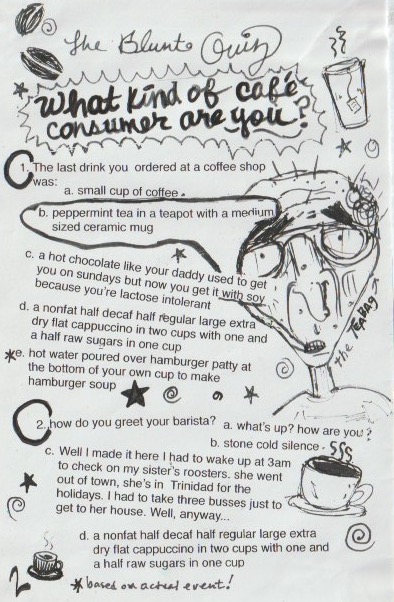 The Blunt Quiz
What kind of café
consumer are you?
1. The last drink you ordered at a coffee shop
was:
a. small cup of coffee.
b. peppermint tea in a teapot with a medium
sized ceramic mug
c. a hot chocolate like your daddy used to get
you on sundays but now you get it with soy
because you're lactose intolerant
d. a nonfat half decaf half regular large extra
dry flat cappuccino in two cups with one and
a half raw sugars in one cup
*e. hot water poured over hamburger patty at
the bottom of your own cup to make
hamburger soup
the TEABAG
2. how do you greet your barista? a. what's up? how are you?
b. stone cold silence.
c. Well I made it here I had to wake up at 3am
to check on my sister's roosters. she went
out of town, she's in Trinidad for the
holidays. I had to take three busses just to
get to her house. Well, anyway...
d. a nonfat half decaf half regular large extra
dry flat cappuccino in two cups with one and
a half raw sugars in one cup
2
*based on actual event!